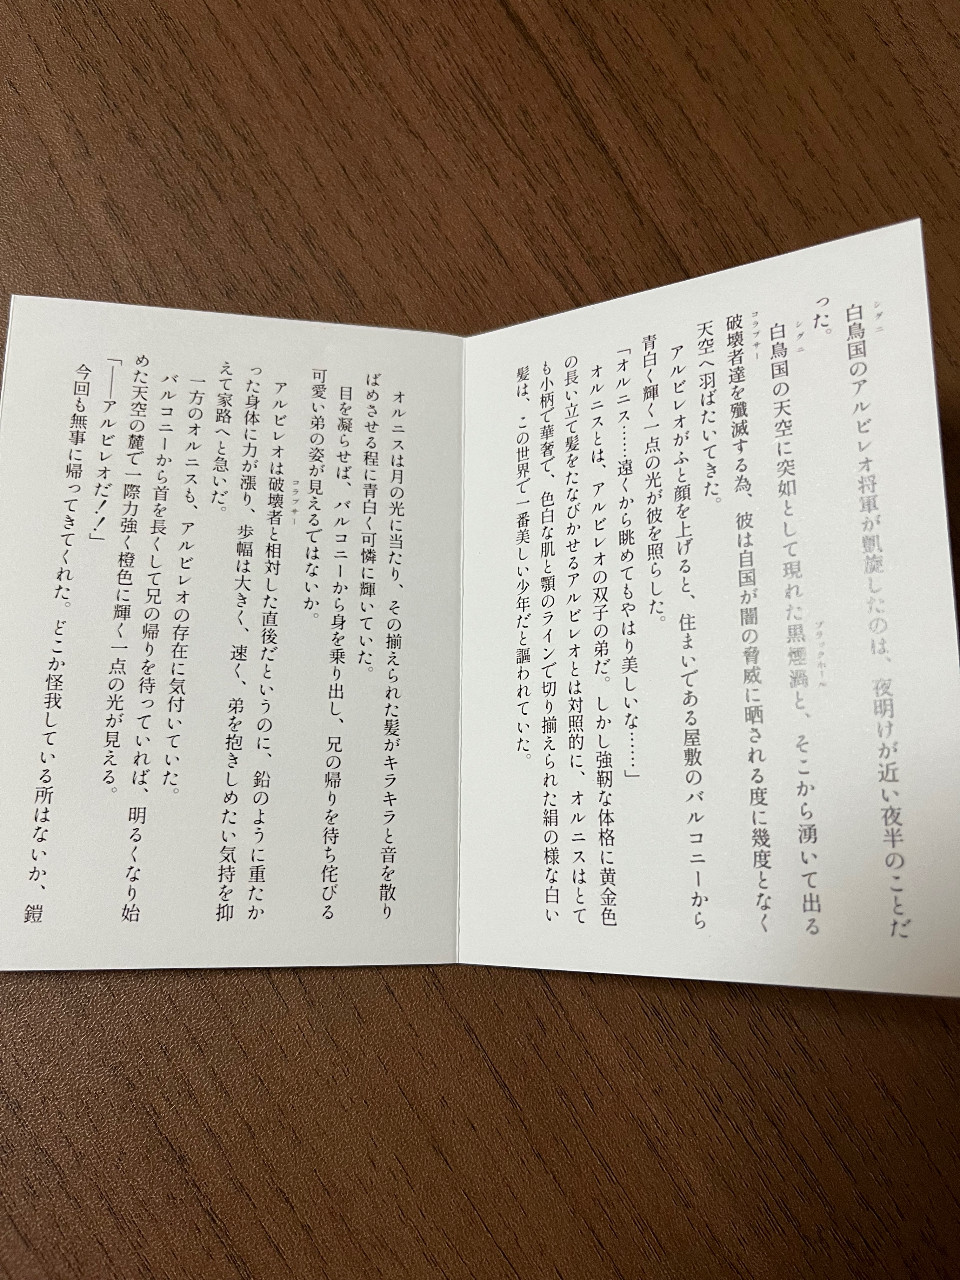 白鳥国のアルビレオ将軍が凱旋したのは、夜明けが近い夜半のことだ
シグニ
った。
白鳥国の天空に突如として現れた黒煙渦と、そこから湧いて出る
シグニ
ブラックホール
破壊者達を殲滅する為、彼は自国が闇の脅威に晒される度に幾度となく
コラプサー
天空へ羽ばたいてきた。
アルビレオがふと顔を上げると、住まいである屋敷のバルコニーから
青白く輝く一点の光が彼を照らした。
「オルニス……遠くから眺めてもやはり美しいな……」
オルニスとは、アルビレオの双子の弟だ。しかし強靭な体格に黄金色
の長い立て髪をたなびかせるアルビレオとは対照的に、オルニスはとて
も小柄で華奢で、色白な肌と顎のラインで切り揃えられた絹の様な白い
髪は、この世界で一番美しい少年だと謳われていた。
オルニスは月の光に当たり、その揃えられた髪がキラキラと音を散り
ばめさせる程に青白く可憐に輝いていた。
目を凝らせば、バルコニーから身を乗り出し、兄の帰りを待ち侘びる
可愛い弟の姿が見えるではないか。
アルビレオは破壊者と相対した直後だというのに、鉛のように重たか
コラプサー
った身体に力が漲り、歩幅は大きく、速く、弟を抱きしめたい気持を抑
えて家路へと急いだ。
一方のオルニスも、アルビレオの存在に気付いていた。
バルコニーから首を長くして兄の帰りを待っていれば、明るくなり始
めた天空の麓で一際力強く橙色に輝く一点の光が見える。
「――アルビレオだ!!」
今回も無事に帰ってきてくれた。どこか怪我している所はないか、鎧